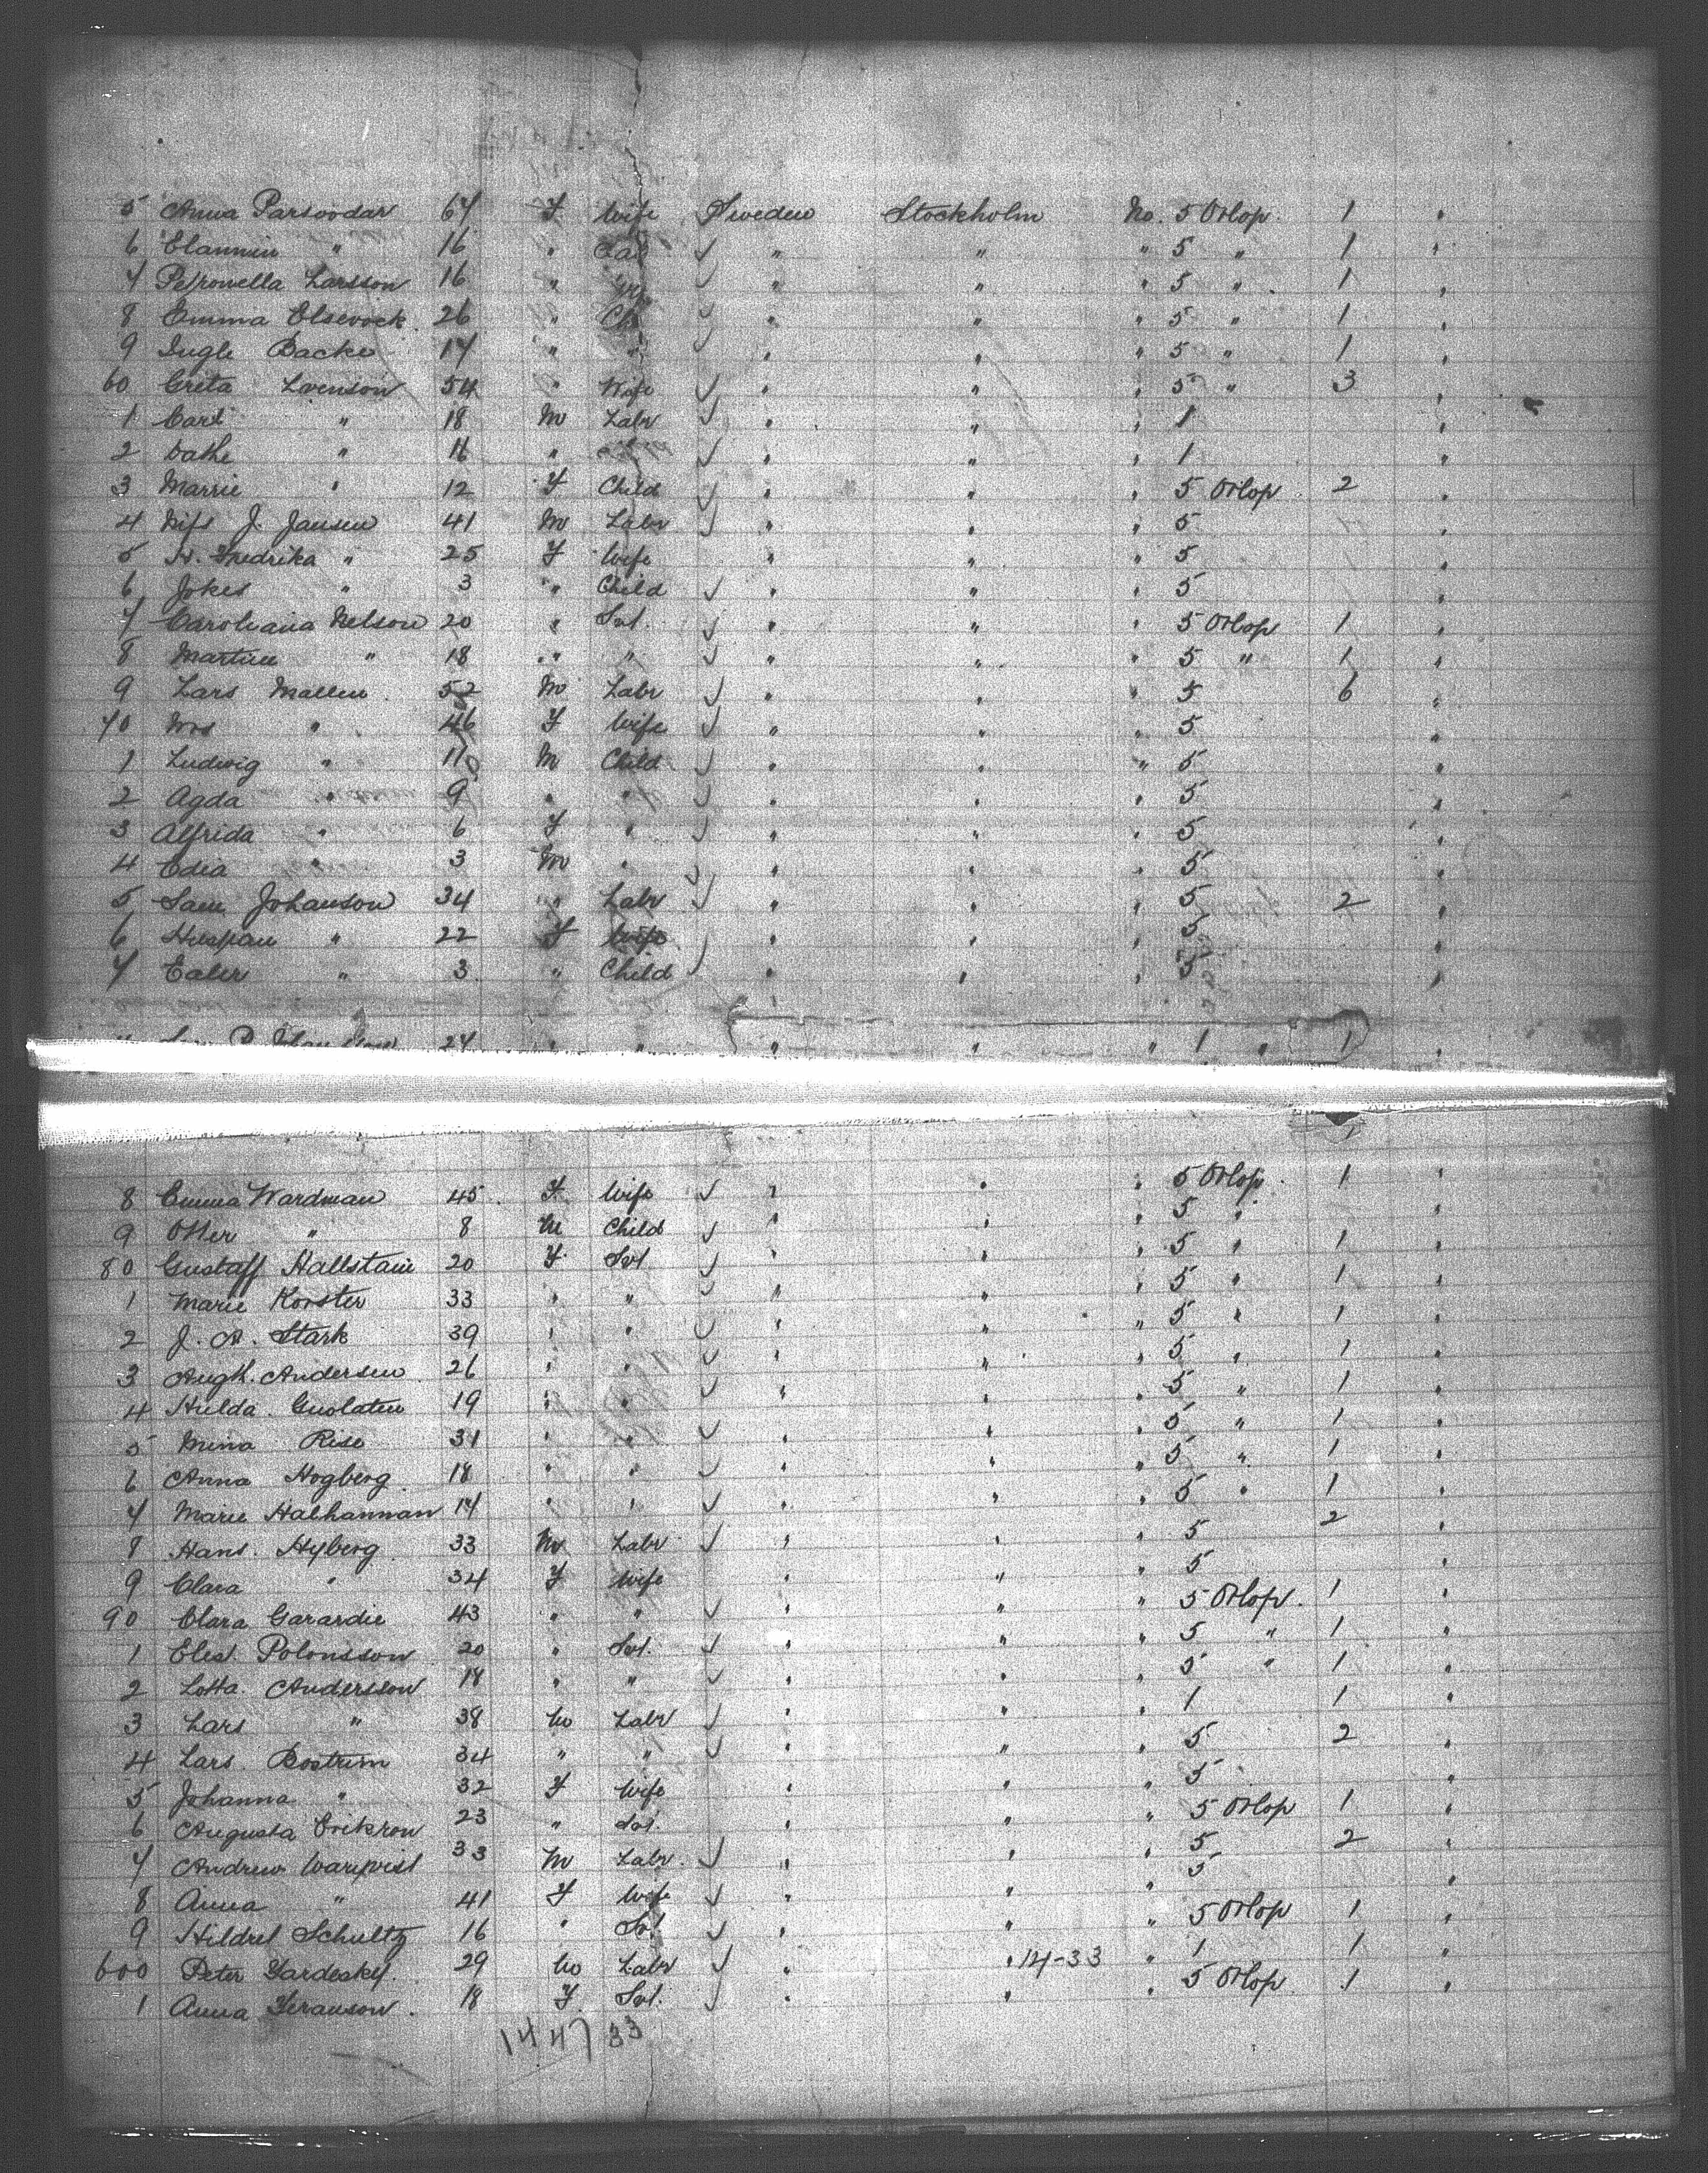 5 Anna Parsodar 67 F Wife Sweden Stockholm No. 5 Orlop. 1 "
6 " 16 " " " " 5 " 1 "
7 Petronella Larsson 16 " " " " 5 " 1 "
8 Emma 26 " " " " 5 " 1 "
9 Backe 17 " " " " " 5 " 1 "
60 Greta 54 " Wife " " " 5 " 3 "
1 Carl " 18 M Labr " " " 1 "
2 " " " " " 1 "
3 Marrie " 12 F Child " " " 5 Orlop 2 "
4 J. Jansen 41 M Labr " " " 5 "
5 Fredrika " 25 F Wife " " " 5 "
6 Jokes " 3 " Child " " " 5 "
7 Nelson 20 " Svt. " " " 5 Orlop 1 "
8 " 18 " " " " " 5 " 1 "
9 Lars Mallen 52 M Labr " " " 5 6 "
70 Mrs " 46 F Wife " " " 5 "
1 Ludwig " M Child " " " 5 "
2 Agda " 9 " " " " " 5 "
3 Alfrida " 6 F " " " " 5 "
4 Edia " 3 M " " " " 5 "
5 Sam Johanson 34 " Labr " " " 5 2 "
6 " 22 F Wife " " " 5 "
7 Ealer " 3 " Child " " " 5 "
24 " " " " " 1 " 1 "
8 Emma Wardman 45 F Wife " " " 5 Orlop 1 "
9 Otter " 8 M Child " " " 5 "
80 Gustaff Hallstain 20 F Svt " " " 5 " 1 "
1 Marie Korster 33 " " " " " 5 " 1 "
2 J. A. Stark 39 " " " " " 5 " 1 "
3 Augh. Andersen 26 " " " " " 5 " 1 "
4 Hulda Guolaten 19 " " " " " 5 " 1 "
5 Mina Rise 31 " " " " " 5 " 1 "
6 Anna Hogberg 18 " " " " " 5 " 1 "
7 Marie Halhannan 17 " " " " " 5 " 1 "
8 Hans Hyberg 33 M Labr " " " 5 2 "
9 Clara " 34 F Wife " " " 5 "
90 Clara Garardie 43 " " " " " 5 Orlop. 1 "
1 Eles. Polonsson 20 " Svt. " " " 5 " 1 "
2 Lotta Andersson 18 " " " " " 5 " 1 "
3 Lars " 38 M Labr " " " 1 1 "
4 Lars. Bostrim 34 " " " " " 5 2 "
5 Johanna " 32 F Wife " " " 5 "
6 Augusta Erikson 23 " Svt. " " " 5 Orlop 1 "
7 Andrew 33 M Labr. " " " 5 2 "
8 Anna " 41 F Wife " " " 5 "
9 Hildrel Schultz 16 " Svt " " " 5 Orlop 1 "
600 Peter Yardesky. 29 M Labr " " 14-33 " 1 1 "
1 Anna 18 F. Svt. " " " 5 Orlop 1 "
14 47 33